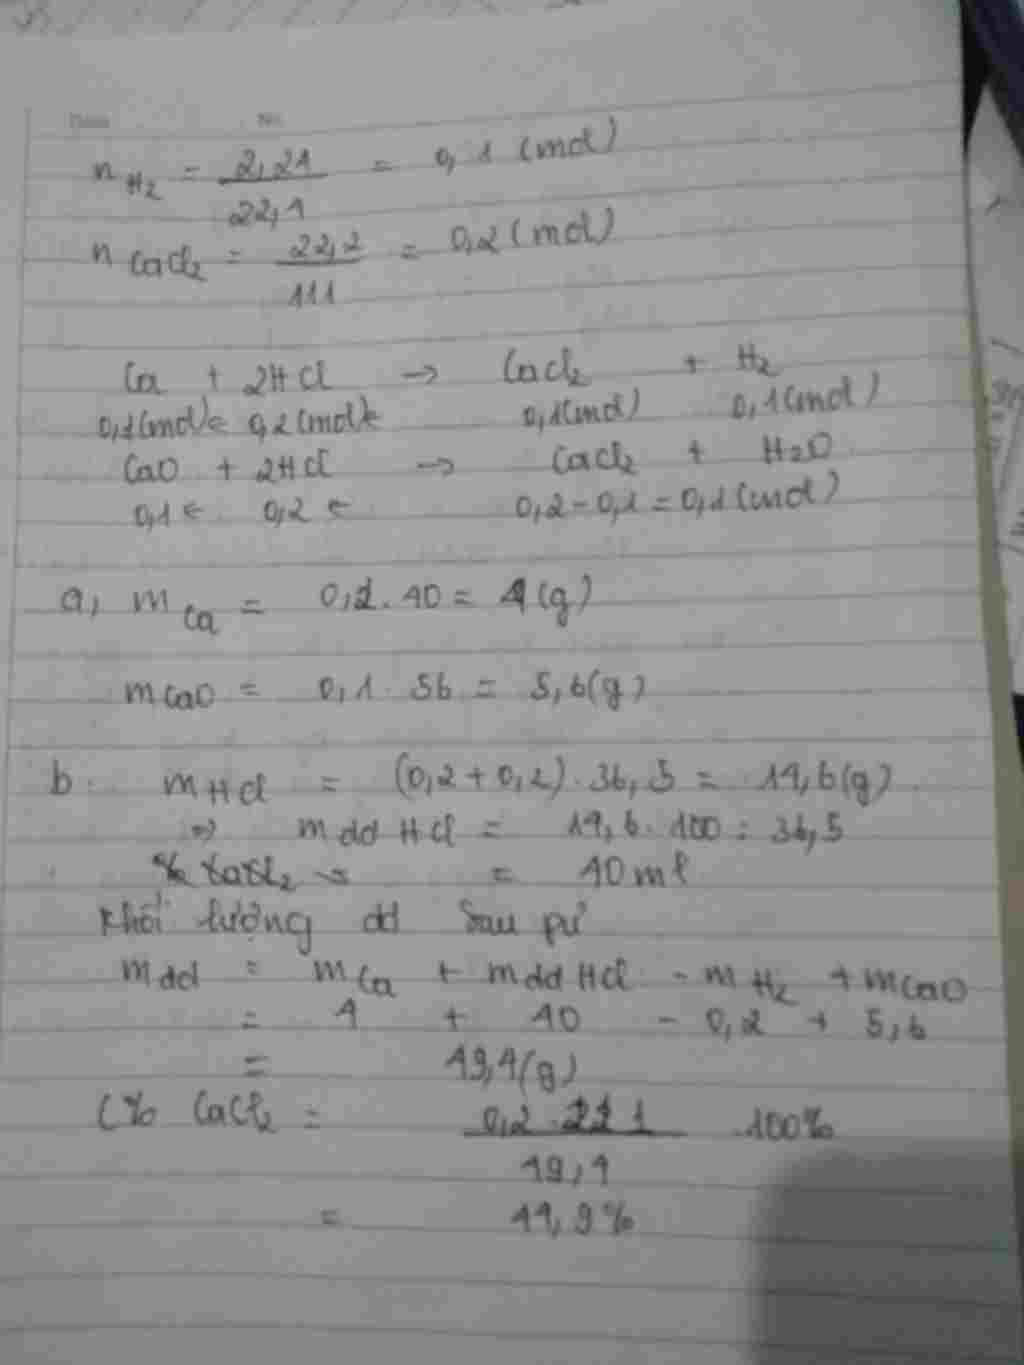 Date No.
n H₂ = 2,24 / 22,4 = 0,1 (mol)
n CaCl₂ = 22,2 / 111 = 0,2 (mol)
Ca + 2HCl → CaCl₂ + H₂
0,1(mol)← 0,2(mol)← 0,1(mol) 0,1(mol)
CaO + 2HCl → CaCl₂ + H₂O
0,1 ← 0,2 ← 0,2 - 0,1 = 0,1(mol)
a, m Ca = 0,1.40 = 4(g)
mCaO = 0,1 . 56 = 5,6(g)
b. mHCl = (0,2+0,2).36,5 = 14,6(g)
=> m dd HCl = 14,6.100:36,5
= 40ml
Khối lượng dd sau pư
mdd = mCa + mdd HCl - mH₂ + mCaO
= 4 + 40 - 0,2 + 5,6
= 49,4(g)
C% CaCl₂ = 0,2.111 / 49,4 .100%
= 44,9%